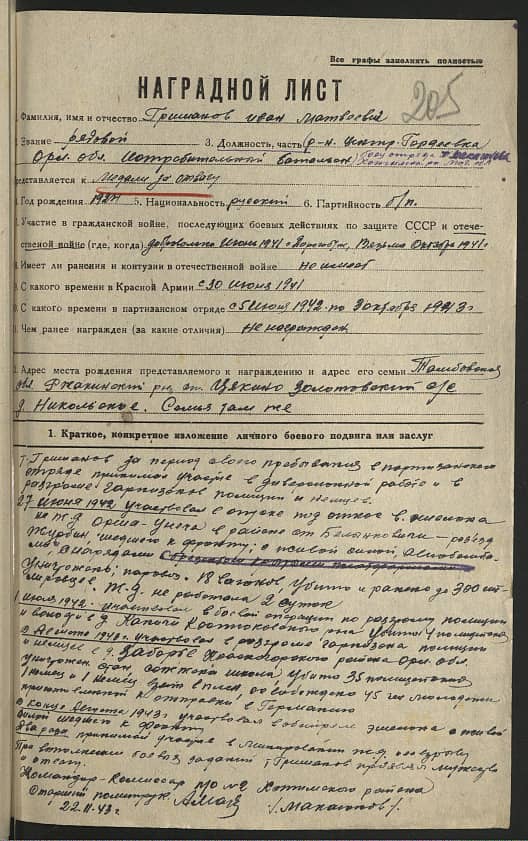 Все графы заполнять полностью
205
НАГРАДНОЙ ЛИСТ
Фамилия, имя и отчество Гришанов Иван Матвеевич
Звание рядовой 3. Должность, часть р-н. центр. Гордеевка
Орл. обл. Истребительный батальон
представляется к Медали за отвагу
Год рождения 5. Национальность русский 6. Партийность б/п.
Участие в гражданской войне, последующих боевых действиях по защите СССР и отече-
ственой войне (где, когда) добровольно июнь 1941 г. Вязьма Октябрь 1941 г.
Имеет ли ранения и контузии в отечественной войне не имеет
С какого времени в Красной Армии с 30 июня 1941
С какого времени в партизанском отряде с 5 июня 1942 по 3 октября 1943 г
Чем ранее награжден (за какие отличия) не награжден
Адрес места рождения представляемого к награждению и адрес его семьи Тамбовская
обл. р-н ст. Золотовский с/с
д. Никольское. Семья там же
1. Краткое, конкретное изложение личного боевого подвига или заслуг
т. Гришанов за период своего пребывания в партизанском
отряде принимал участие в диверсионной работе и в
разгроме гарнизонов полиции и немцев.
27 июня 1942 участвовал в спуске под откос в. эшелона
на ж.д Орша-Унеча в районе ст Белынковичи - разъезд
Журбин, шедшего к фронту, с живой силой,
и снарядами
Уничтожен: паровоз. 18 вагонов убито и ранено до 300 гит-
леровцев. Ж.д. не работала 2 суток
июля 1942. участвовал в боевой операции по разгрому полиции
и волости в д. района убито 4 полицейских
В Августе 1943 г. участвовал в разгроме гарнизона полиции
и немцев в д. Заборье Красногорского района Орл. обл.
уничтожен сожжена школа убито 35 полицейских
1 немец и 1 немец взят в плен, освобождено 45 чел молодежи
к отправке в Германию
В конце Августа 1943 г участвовал в обстреле эшелона с живой
силой шедшего к фронту
Два раза принимал участие в минировании ж.д.
При выполнении боевых заданий т Гришанов проявлял мужество
и отвагу.
Командир-Комиссар ПО №2 Хотимского района
Старший политрук. /Макаонов/.
22.11.43 г